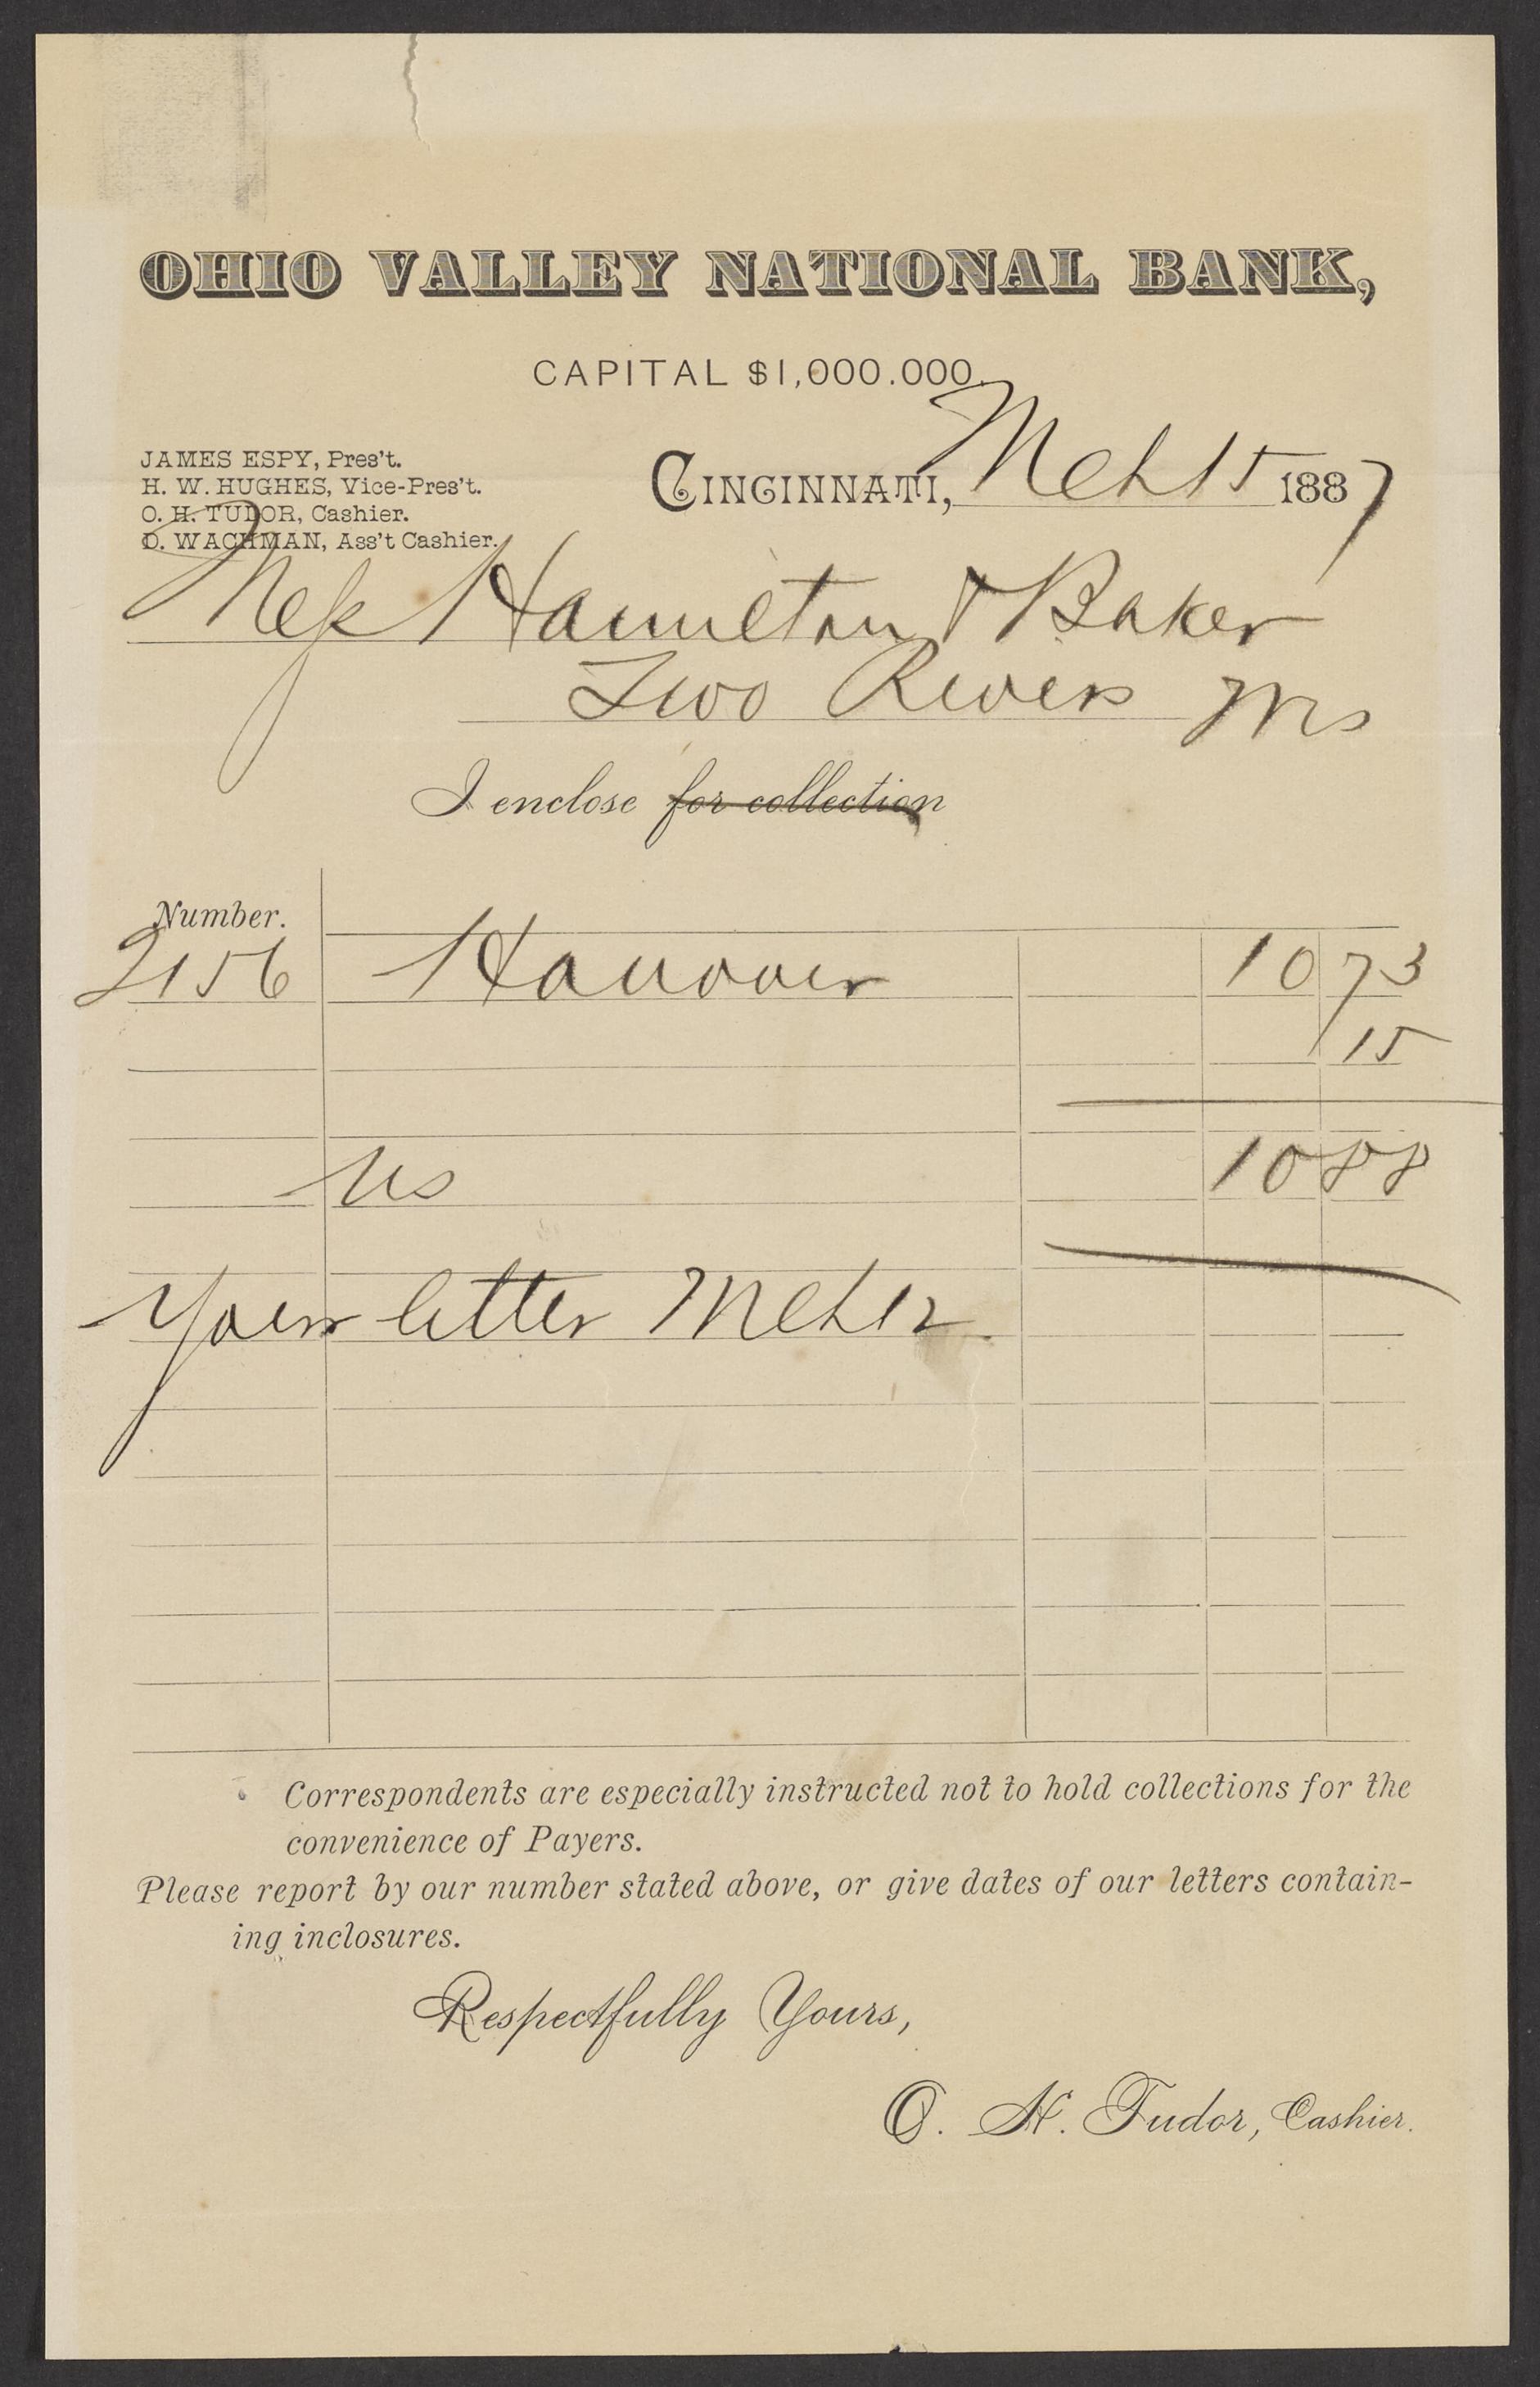 OHIO VALLEY NATIONAL BANK,
CAPITAL $1,000.000.
JAMES ESPY, Pres't.
H. W. HUGHES, Vice-Pres't.
O. H. TUDOR, Cashier.
D. WACHMAN, Ass't Cashier.
CINCINNATI, Mch 15 1887
Hamilton & Baker
Two Rivers
I enclose for collection
Number.
2156 Hanover 10 73
15
Us 10 88
Your letter Mch 12
Correspondents are especially instructed not to hold collections for the
convenience of Payers.
Please report by our number stated above, or give dates of our letters contain-
ing inclosures.
Respectfully Yours,
O. H. Tudor, Cashier.